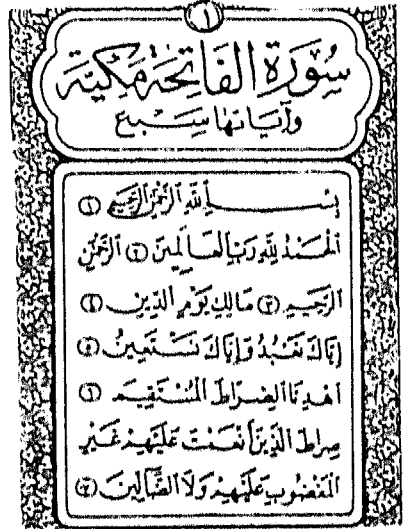 ١
سُورَةُ الفَاتِحَةِ مَكِّيَّة
وَآيَاتُهَا سَبْع
بِسْمِ اللَّهِ الرَّحْمَنِ الرَّحِيمِ ١
الْحَمْدُ لِلَّهِ رَبِّ الْعَالَمِينَ ٢ الرَّحْمَنِ
الرَّحِيمِ ٣ مَالِكِ يَوْمِ الدِّينِ ٤
إِيَّاكَ نَعْبُدُ وَإِيَّاكَ نَسْتَعِينُ ٥
اهْدِنَا الصِّرَاطَ الْمُسْتَقِيمَ ٦
صِرَاطَ الَّذِينَ أَنْعَمْتَ عَلَيْهِمْ غَيْرِ
الْمَغْضُوبِ عَلَيْهِمْ وَلَا الضَّالِّينَ ٧